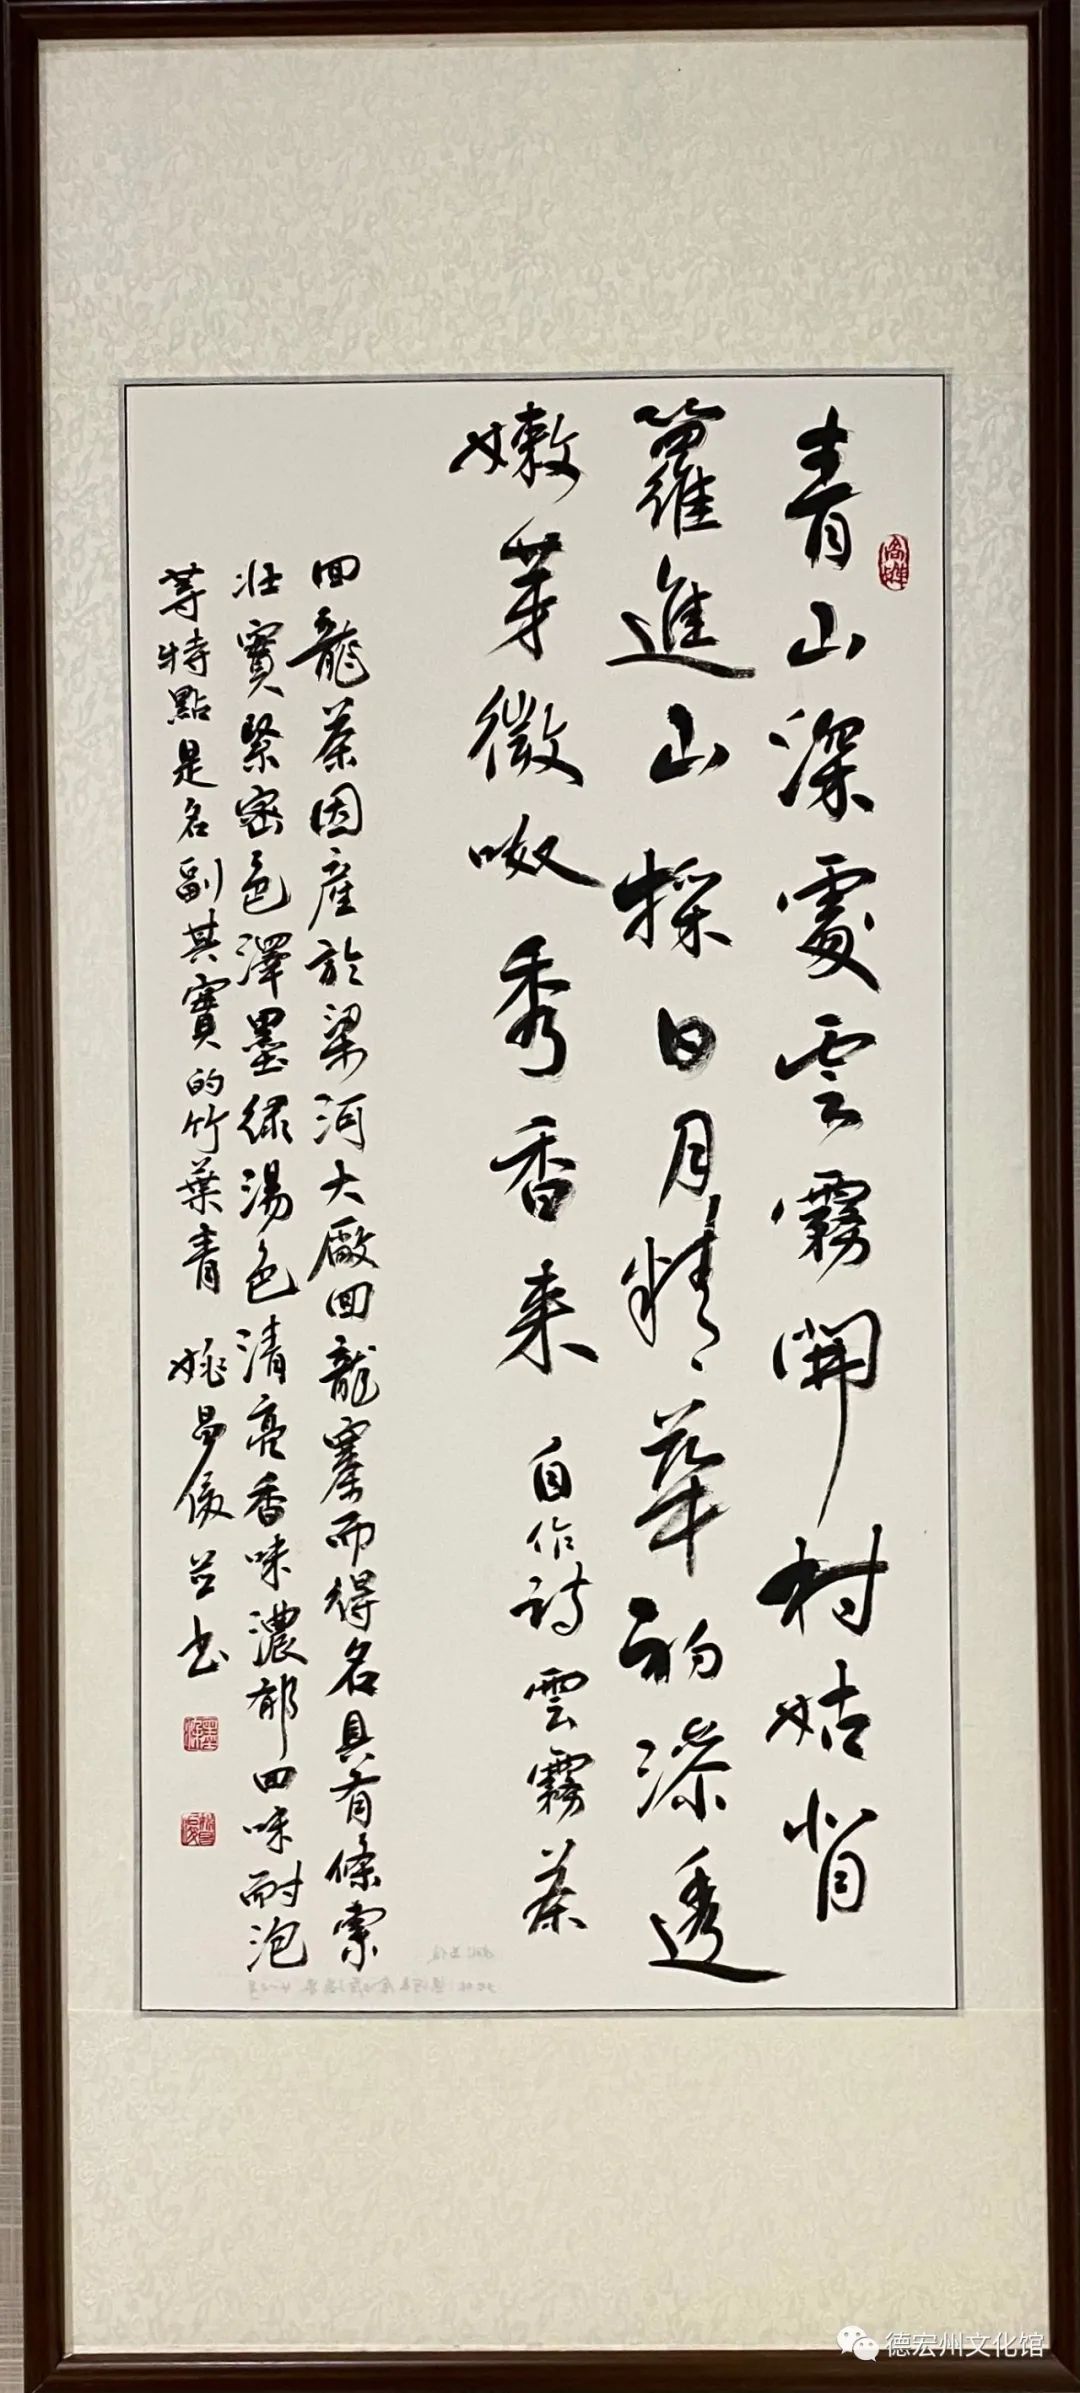 青山深處雲霧開村姑背
籮進山採日月精華初漆透
嫩芽微呶秀香来
自作詩雲霧茶
回龍茶因産於梁河大廠回龍寨而得名具有條索
壮實緊密色澤墨緑湯色清亮香味濃郁回味耐泡
等特點是名副其實的竹葉青
姚昌俊并书
德宏州文化馆